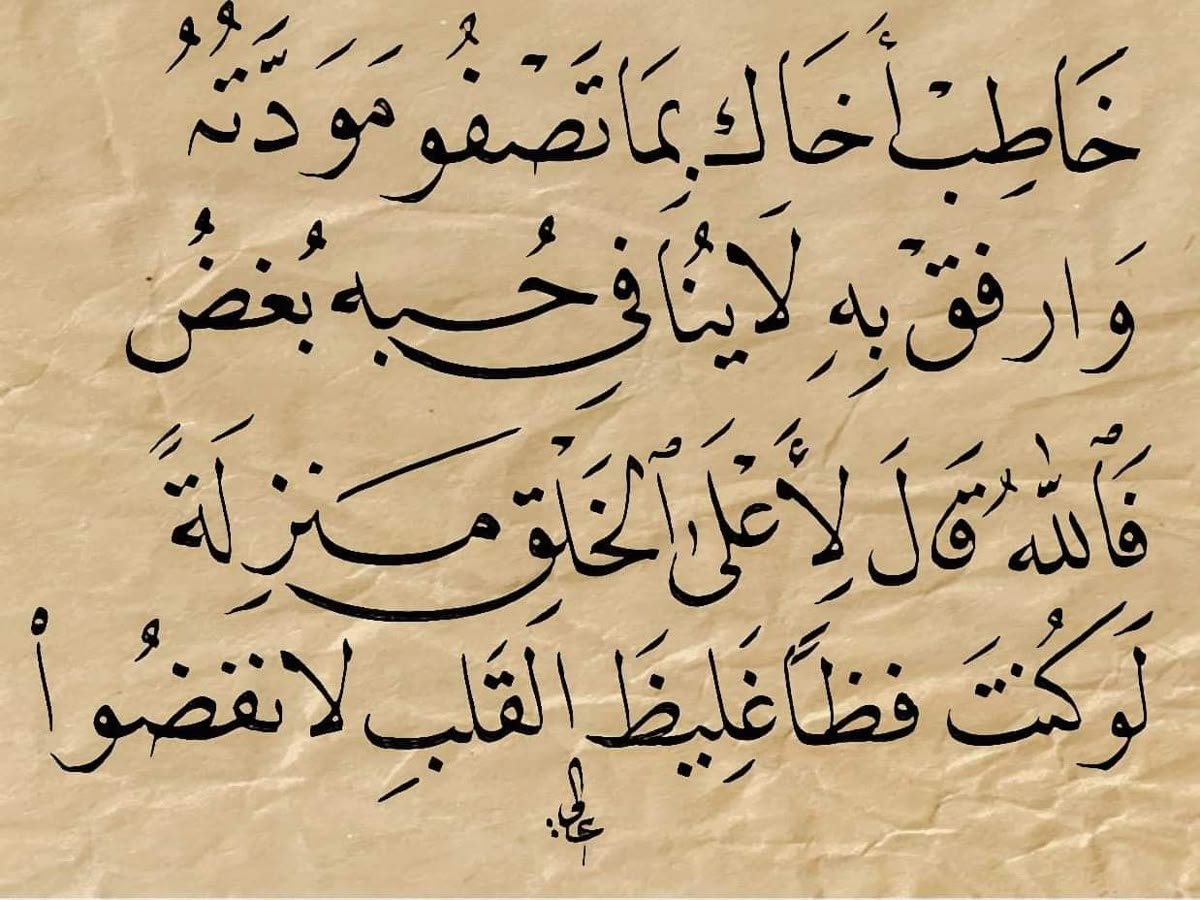 خَاطِبْ أَخَاكَ بِمَا تَصْفُو مَوَدَّتُهُ
وَارفقْ بِهِ لَا يُنَافِي حُبهِ بُغضُ
فَٱللّٰهُ قَالَ لِأَعْلَى ٱلخَلْقِ مَنزِلَةً
لَو كُنتَ فظاً غَلِيظَ القَلبِ لانفضُواْ